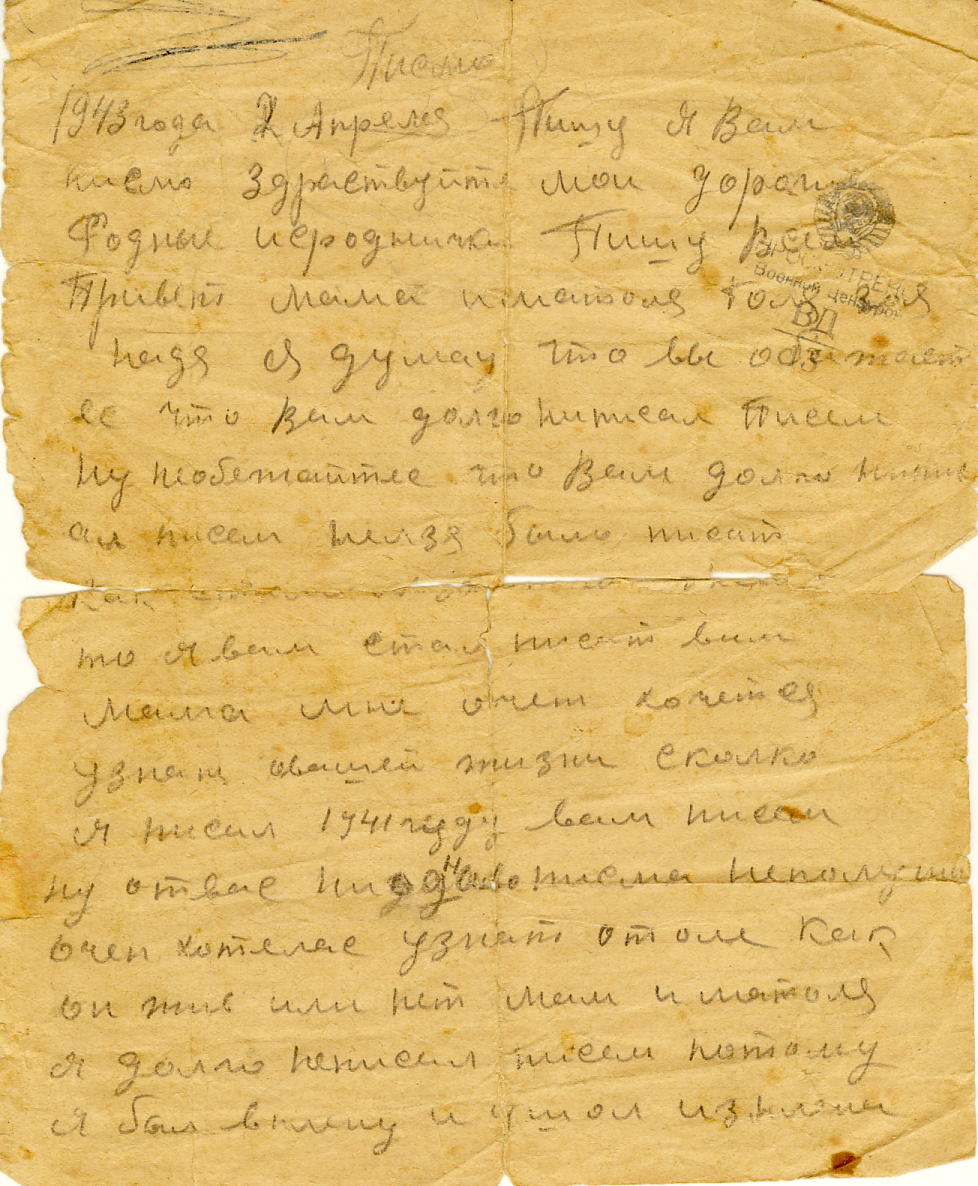 Писмо
1943 года 2 Апреля Пишу я Вам
писмо Здраствуйте мои дороги
Родные исродничка Пишу Вам
Привет мама иматоля Толя Зоя
ПРОСМОТРЕНО
Военной Цензурой
ВД
Надя Я думау что вы обижает
ес что Вам долго ниписал Писем
ну необежайтес что Вам долго нипис
ал писем нелзя было писат
Как
то я вам стал писат вам
мама мне очен хочется
узнат овашей жизни сколко
я писал 1941 году вам писем
ну отвас ниодново писма неполучил
очен хотелас узнат отоле как
он жив или нет мам и матоля
я долго неписал писем потому
я был вплену и ушол изплена